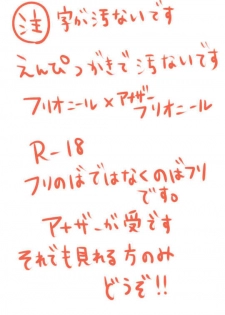 注 字が汚ないです
えんぴつがきで汚ないです
フリオニール×アナザーフリオニール
R-18
フリのばではなくのばフリ
です。
アナザーが受です
それでも見れる方のみ
どうぞ!!